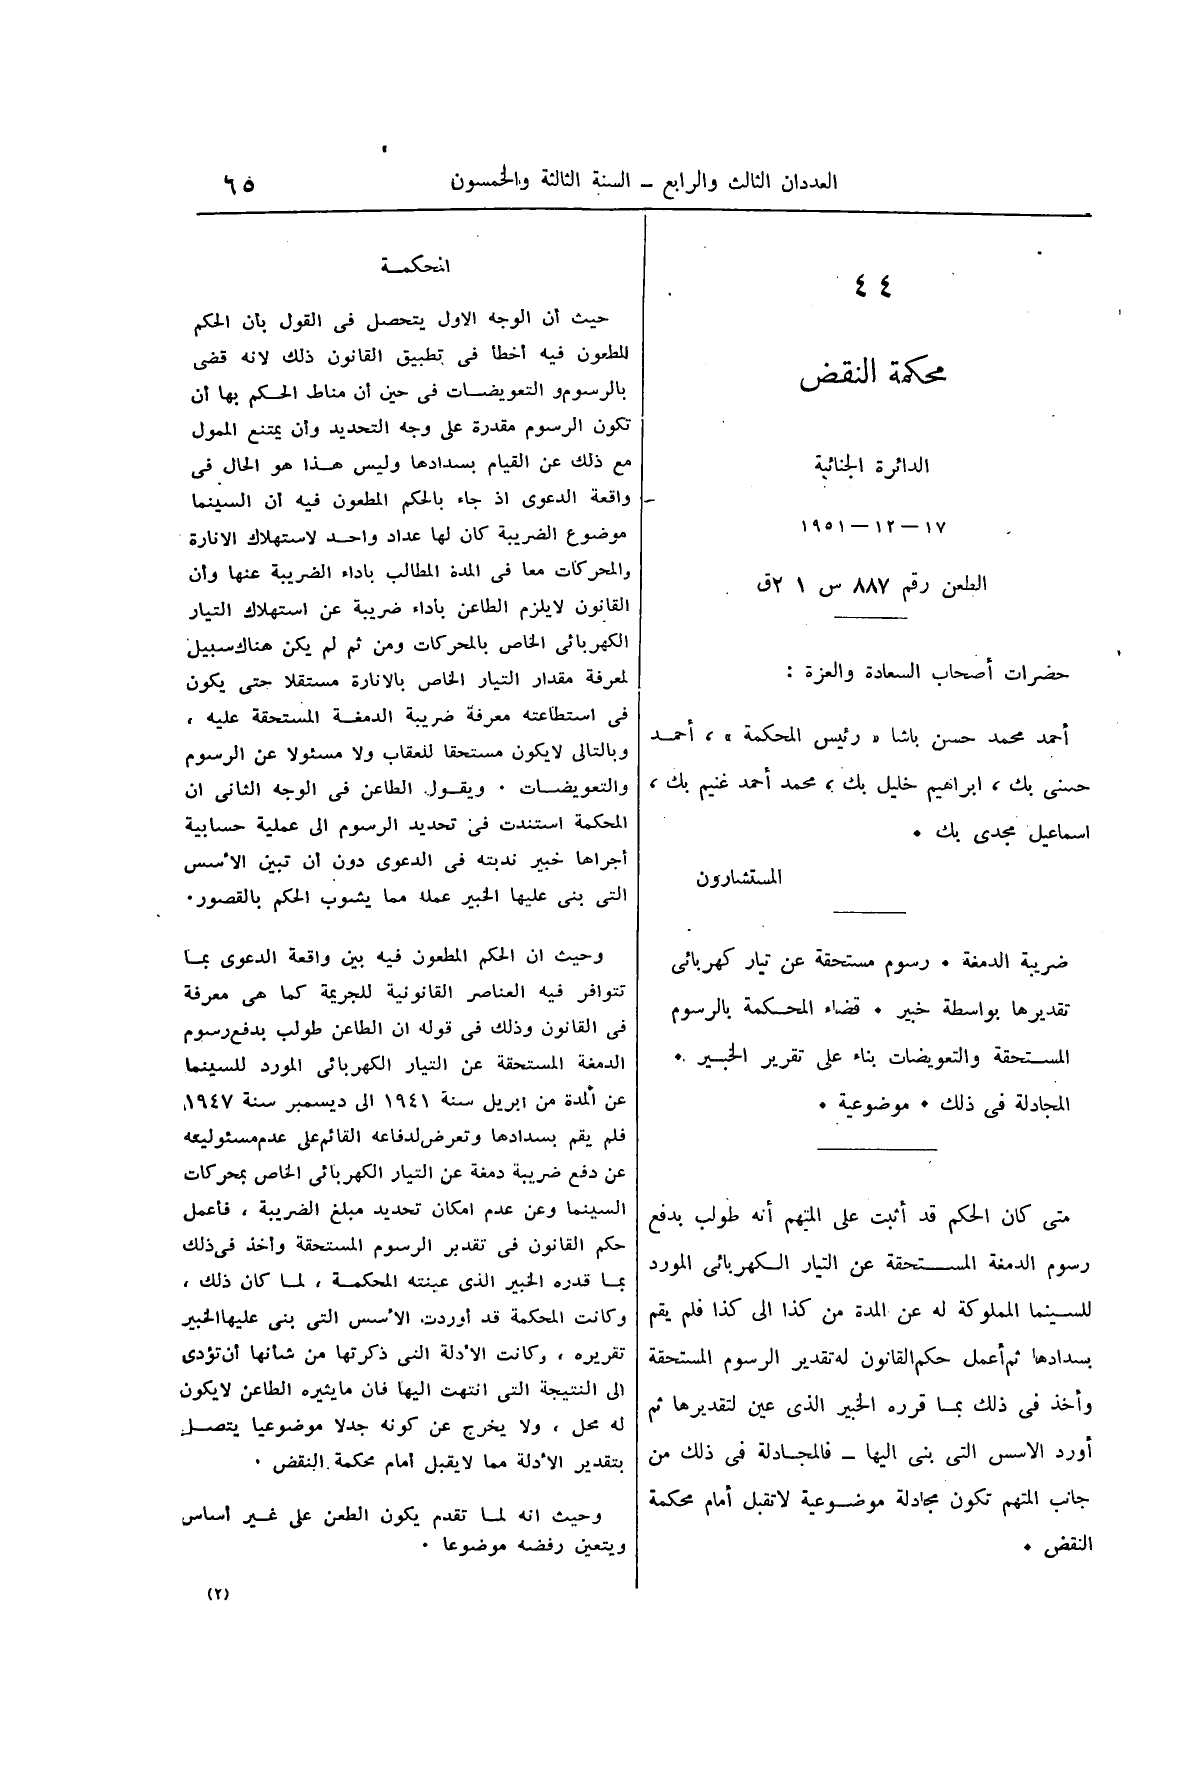 العددان الثالث والرابع — السنة الثالثة والخمسون
٦٥
٤٤
محكمة النقض
الدائرة الجنائية
١٧ — ١٢ — ١٩٥١
الطعن رقم ٨٨٧ س ٢١ ق
حضرات أصحاب السعادة والعزة :
أحمد محمد حسن باشا « رئيس المحكمة » ، أحمد
حسنى بك ، ابراهيم خليل بك ، محمد أحمد غنيم بك ،
اسماعيل مجدى بك .
المستشارون
ضريبة الدمغة . رسوم مستحقة عن تيار كهربائى
تقديرها بواسطة خبير . قضاء المحكمة بالرسوم
المستحقة والتعويضات بناء على تقرير الخبير .
المجادلة فى ذلك . موضوعية .
متى كان الحكم قد أثبت على المتهم أنه طولب بدفع
رسوم الدمغة المستحقة عن التيار الكهربائى المورد
للسينما المملوكة له عن المدة من كذا الى كذا فلم يقم
بسدادها ثم أعمل حكم القانون له تقدير الرسوم المستحقة
وأخذ فى ذلك بما قرره الخبير الذى عين لتقديرها ثم
أورد الاسس التى بنى اليها — فالمجادلة فى ذلك من
جانب المتهم تكون مجادلة موضوعية لاتقبل أمام محكمة
النقض .
المحكمة
حيث أن الوجه الاول يتحصل فى القول بأن الحكم
المطعون فيه أخطأ فى تطبيق القانون ذلك لانه قضى
بالرسوم و التعويضات فى حين أن مناط الحكم بها أن
تكون الرسوم مقدرة على وجه التحديد وأن يمتنع الممول
مع ذلك عن القيام بسدادها وليس هذا هو الحال فى
واقعة الدعوى اذ جاء بالحكم المطعون فيه أن السينما
موضوع الضريبة كان لها عداد واحد لاستهلاك الانارة
والمحركات معا فى المدة المطالب باداء الضريبة عنها وأن
القانون لايلزم الطاعن بأداء ضريبة عن استهلاك التيار
الكهربائى الخاص بالمحركات ومن ثم لم يكن هناك سبيل
لمعرفة مقدار التيار الخاص بالانارة مستقلا حتى يكون
فى استطاعته معرفة ضريبة الدمغة المستحقة عليه ،
وبالتالى لايكون مستحقا للعقاب ولا مسئولا عن الرسوم
والتعويضات . ويقول الطاعن فى الوجه الثانى ان
المحكمة استندت فى تحديد الرسوم الى عملية حسابية
أجراها خبير ندبته فى الدعوى دون أن تبين الأسس
التى بنى عليها الخبير عمله مما يشوب الحكم بالقصور .
وحيث ان الحكم المطعون فيه بين واقعة الدعوى بما
تتوافر فيه العناصر القانونية للجريمة كما هى معرفة
فى القانون وذلك فى قوله ان الطاعن طولب بدفع رسوم
الدمغة المستحقة عن التيار الكهربائى المورد للسينما
عن المدة من ابريل سنة ١٩٤١ الى ديسمبر سنة ١٩٤٧
فلم يقم بسدادها وتعرض لدفاعه القائم على عدم مسئوليته
عن دفع ضريبة دمغة عن التيار الكهربائى الخاص بمحركات
السينما وعن عدم امكان تحديد مبلغ الضريبة ، فأعمل
حكم القانون فى تقدير الرسوم المستحقة وأخذ فى ذلك
بما قدره الخبير الذى عينته المحكمة ، لما كان ذلك ،
وكانت المحكمة قد أوردت الأسس التى بنى عليها الخبير
تقريره ، وكانت الأدلة التى ذكرتها من شأنها أن تؤدى
الى النتيجة التى انتهت اليها فان مايثيره الطاعن لايكون
له محل ، ولا يخرج عن كونه جدلا موضوعيا يتصل
بتقدير الأدلة مما لايقبل أمام محكمة النقض .
وحيث انه لما تقدم يكون الطعن على غير أساس
ويتعين رفضه موضوعا .
(٢)